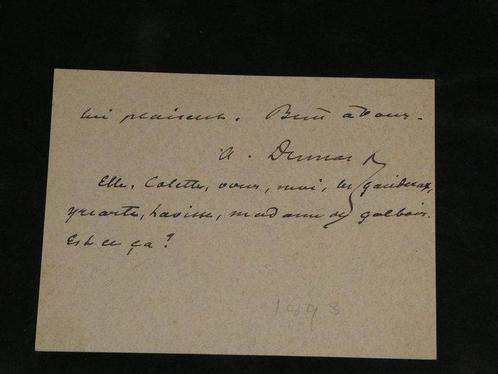 lui plaisent. Bien à vous.
A. Dumas f
Elle, Colette, vous, moi, les Ganderax,
Yriarte, Lavisse, madame de Galbois.
Est ce ça?
1893